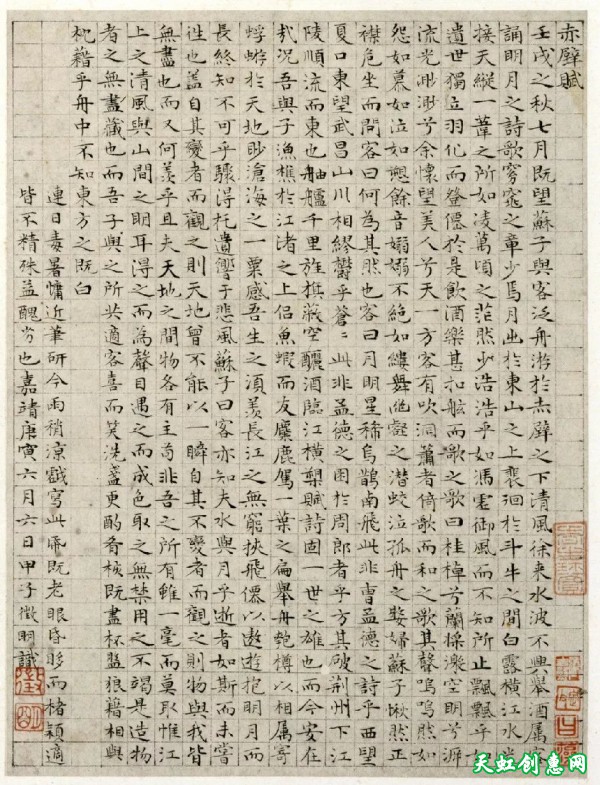 赤壁賦
壬戌之秋七月既望蘇子與客泛舟游於赤壁之下清風徐来水波不興舉酒属客
誦明月之詩歌窈窕之章少焉月出於東山之上裵徊於斗牛之間白露橫江水光
接天縱一葦之所如凌萬頃之茫然少浩浩乎如馮虛御風而不知所止飄飄乎如
遺世獨立羽化而登僊於是飲酒樂甚扣舷而歌之歌曰桂棹兮蘭槳擊空明兮泝
流光渺渺兮余懷望美人兮天一方客有吹洞簫者倚歌而和之其聲嗚嗚然如
怨如慕如泣如愬餘音嫋嫋不絕如縷舞幽壑之潛蛟泣孤舟之嫠婦蘇子愀然正
襟危坐而問客曰何為其然也客曰月明星稀烏鵲南飛此非曹孟德之詩乎西望
夏口東望武昌山川相繆鬱乎蒼〻此非孟德之困於周郎者乎方其破荊州下江
陵順流而東也舳艫千里旌旗蔽空釃酒臨江橫槊賦詩固一世之雄也而今安在
哉況吾與子漁樵於江渚之上侶魚蝦而友麋鹿駕一葉之扁舟舉匏樽以相属寄
蜉蝣於天地眇滄海之一粟感吾生之須羡長江之無窮挾飛僊以遨遊抱明月而
長終知不可乎驟得托遺響于悲風蘇子曰客亦知夫水與月乎逝者如斯而未嘗
往也盖自其變者而觀之則天地曾不能以一瞬自其不變者而觀之則物與我皆
無盡也而又何羡乎且夫天地之間物各有主苟非吾之所有雖一毫而莫取惟江
上之清風與山間之明耳得之而為聲目遇之而成色取之無禁用之不竭是造物
者之無盡藏也而吾子與之所共適客喜而笑洗盞更酌肴核既盡杯盤狼藉相與
枕藉乎舟中不知東方之既白
連日毒暑慵近筆研今雨稍凉戲寫此紙既老眼昏眵而楮穎適
皆不精殊益醜劣也嘉靖庚寅六月六日甲子徵明識
徵明
天虹创惠网